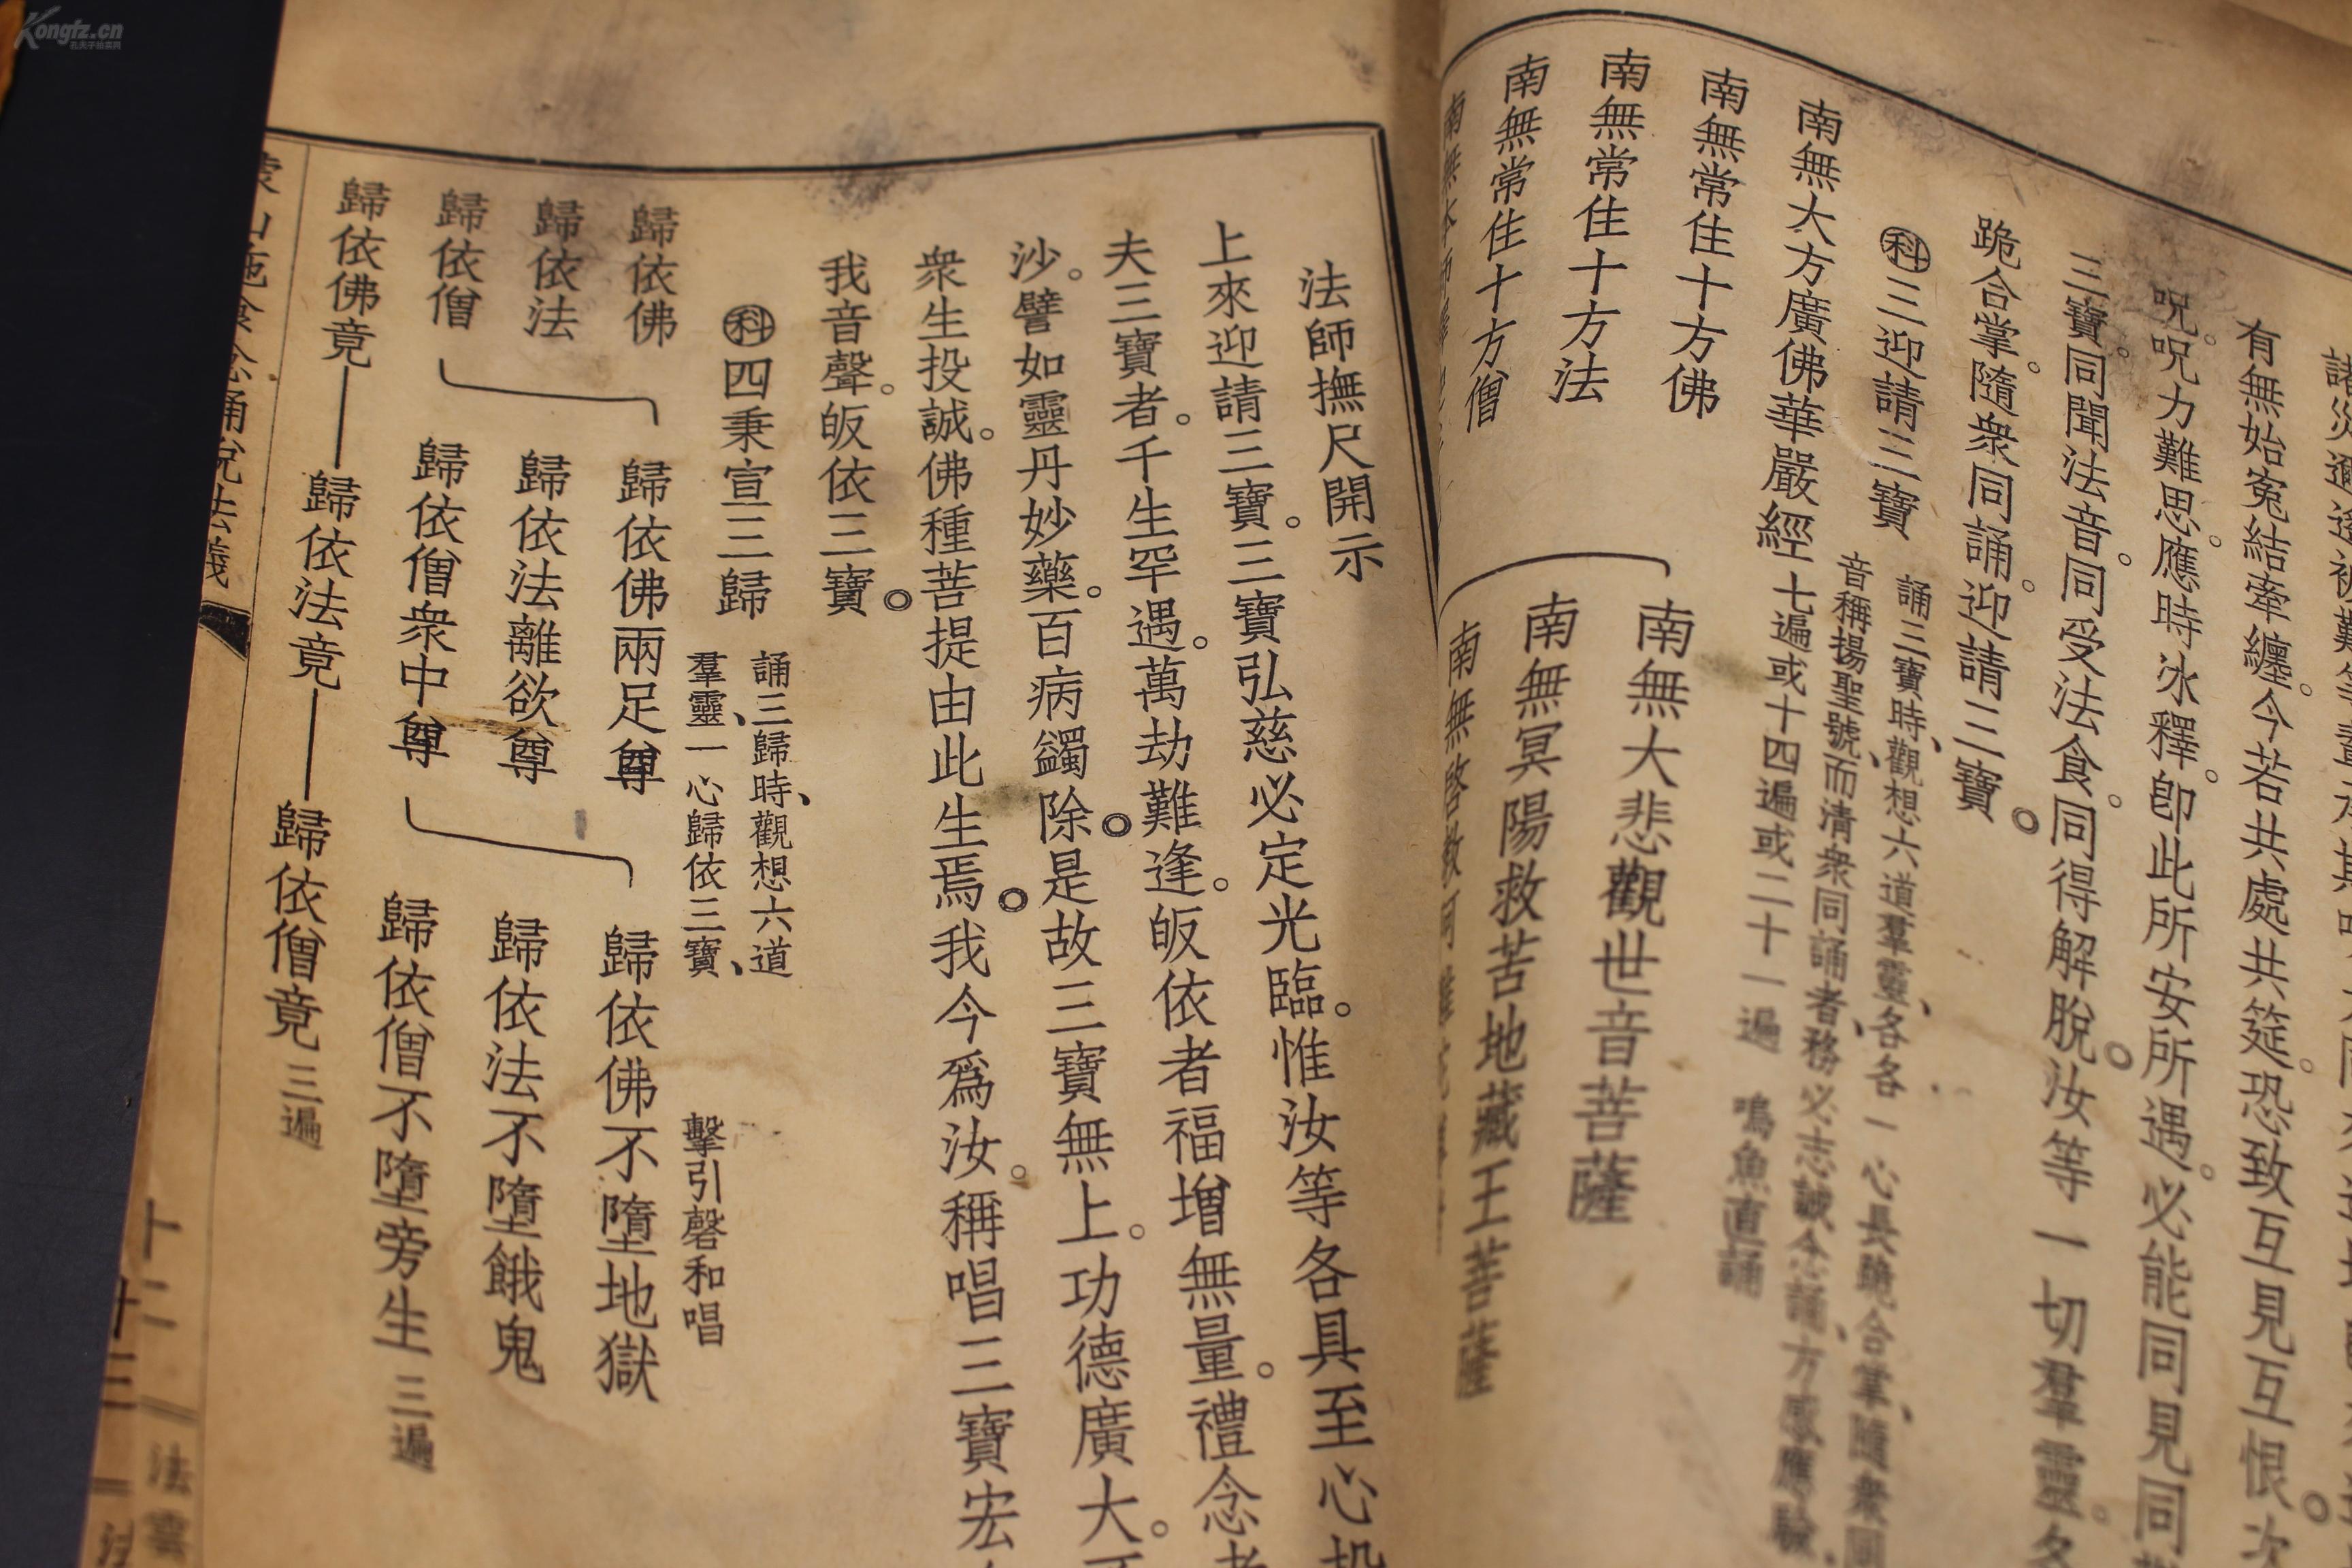 有無始寃結牽纏。今若共處共筵。恐致互見互恨
呪。呪力難思。應時冰釋。卽此所安所遇。必能同見同
三寶。同聞法音。同受法食。同得解脫。汝等一切羣靈。各
跪合掌。隨衆同誦。迎請三寶。
科三迎請三寶
誦三寶時、觀想六道羣靈、各各一心長跪合掌、隨衆同
音稱揚聖號、而淸衆同誦者、務必志誠念誦、方感應
南無大方廣佛華嚴經 七遍或十四遍或二十一遍 鳴魚直誦
南無常住十方佛
南無常住十方法
南無常住十方僧
南無大悲觀世音菩薩
南無冥陽救苦地藏王菩薩
法師撫尺開示
上來迎請三寶。三寶弘慈必定光臨。惟汝等各具至心投
夫三寶者。千生罕遇。萬劫難逢。皈依者福增無量。禮念者
沙。譬如靈丹妙藥。百病蠲除。是故三寶無上。功德廣大。
衆生投誠。佛種菩提由此生焉。我今爲汝。稱唱三寶宏
我音聲。皈依三寶。
科四秉宣三歸
誦三歸時、觀想六道
羣靈、一心歸依三寶、
擊引磬和唱
歸依佛
歸依法
歸依僧
歸依佛兩足尊
歸依法離欲尊
歸依僧衆中尊
歸依佛不墮地獄
歸依法不墮餓鬼
歸依僧不墮旁生 三遍
歸依佛竟 歸依法竟 歸依僧竟 三遍
蒙山施食念誦說法義
十二
法雲
Kongfz.cn